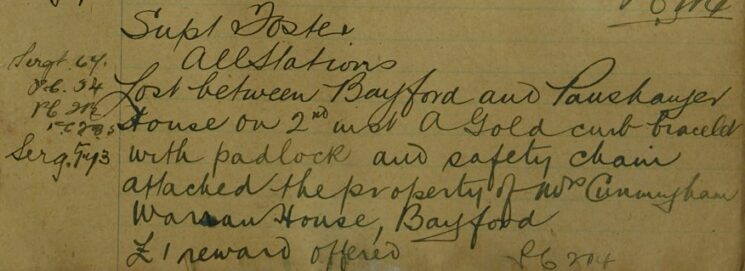 Supt Foster
All Stations
Sergt. 64.
P.C. 54
Lost between Bayford and Panshanger
P.C.
House on 2nd inst A Gold curb bracelet
Serg.
with padlock and safety chain
attached the property of Mrs Cunningham
House, Bayford
£1 reward offered
P.C 204